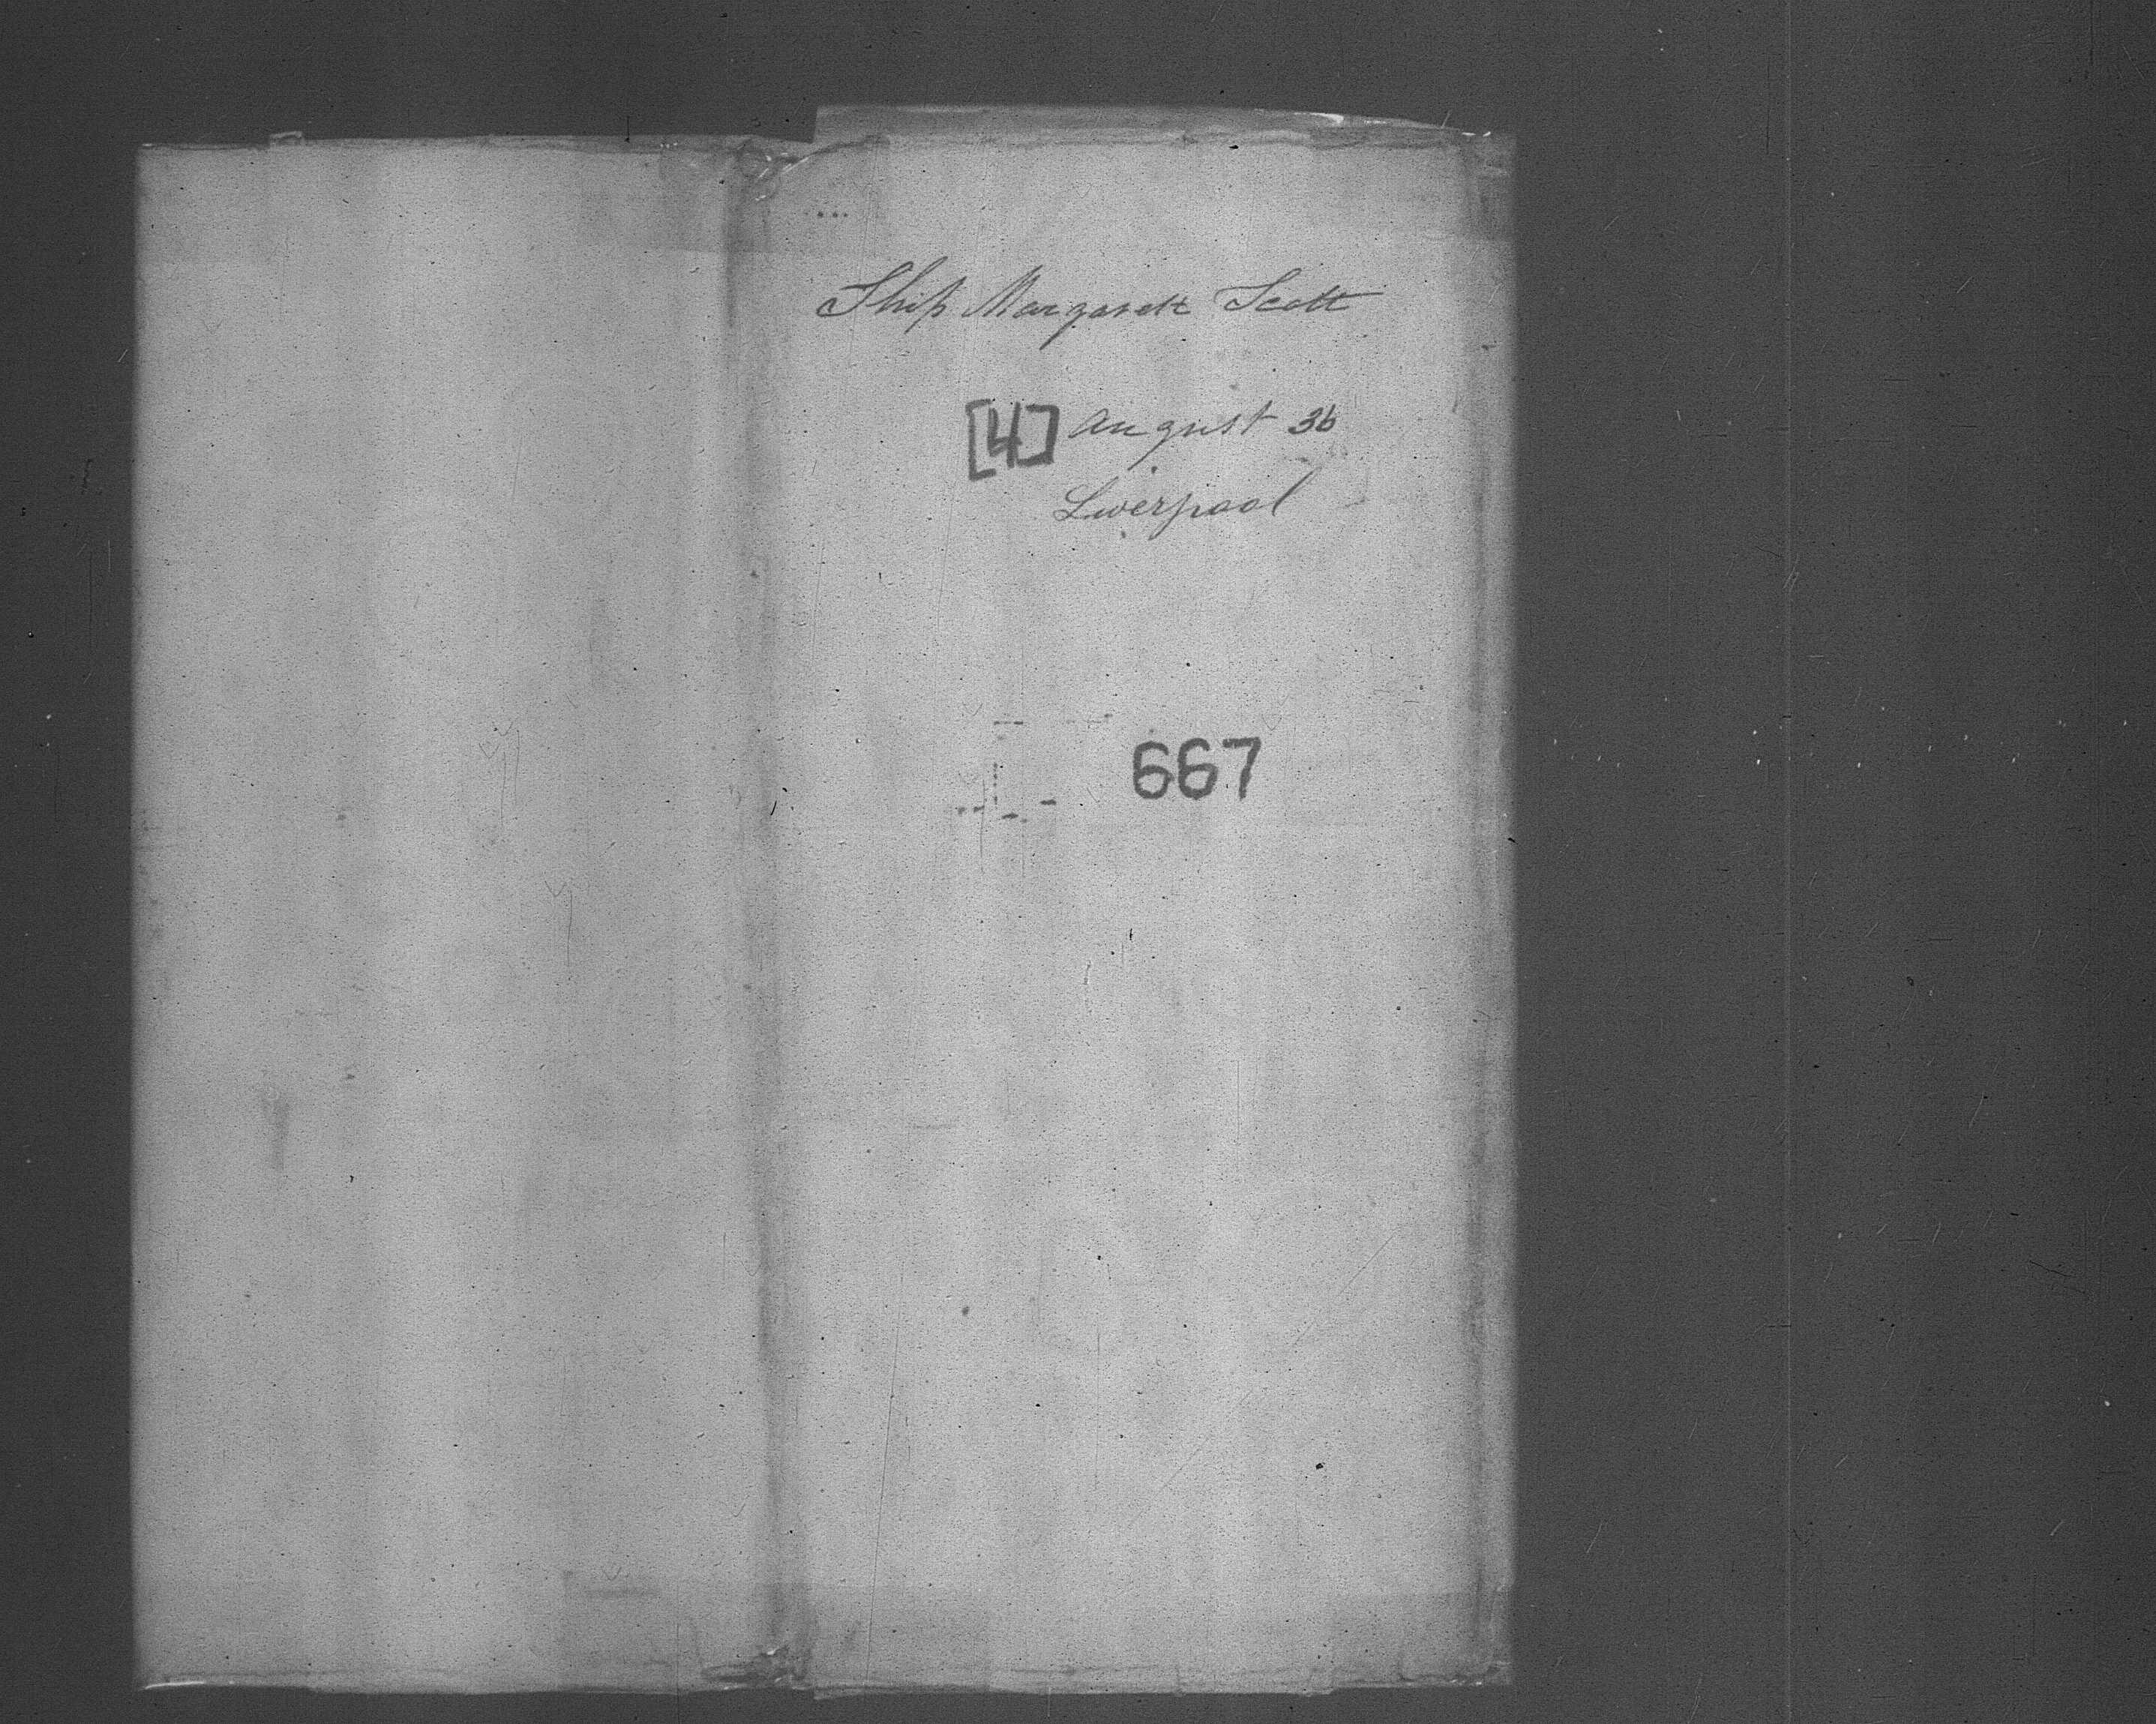 Ship Margarett Scott
[4] August 36
Liverpool
667